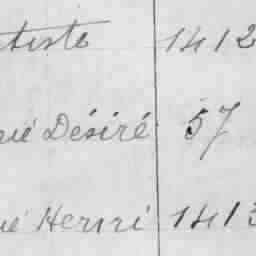 tiste 1412
ué Désiré 57
ué Henri 1413